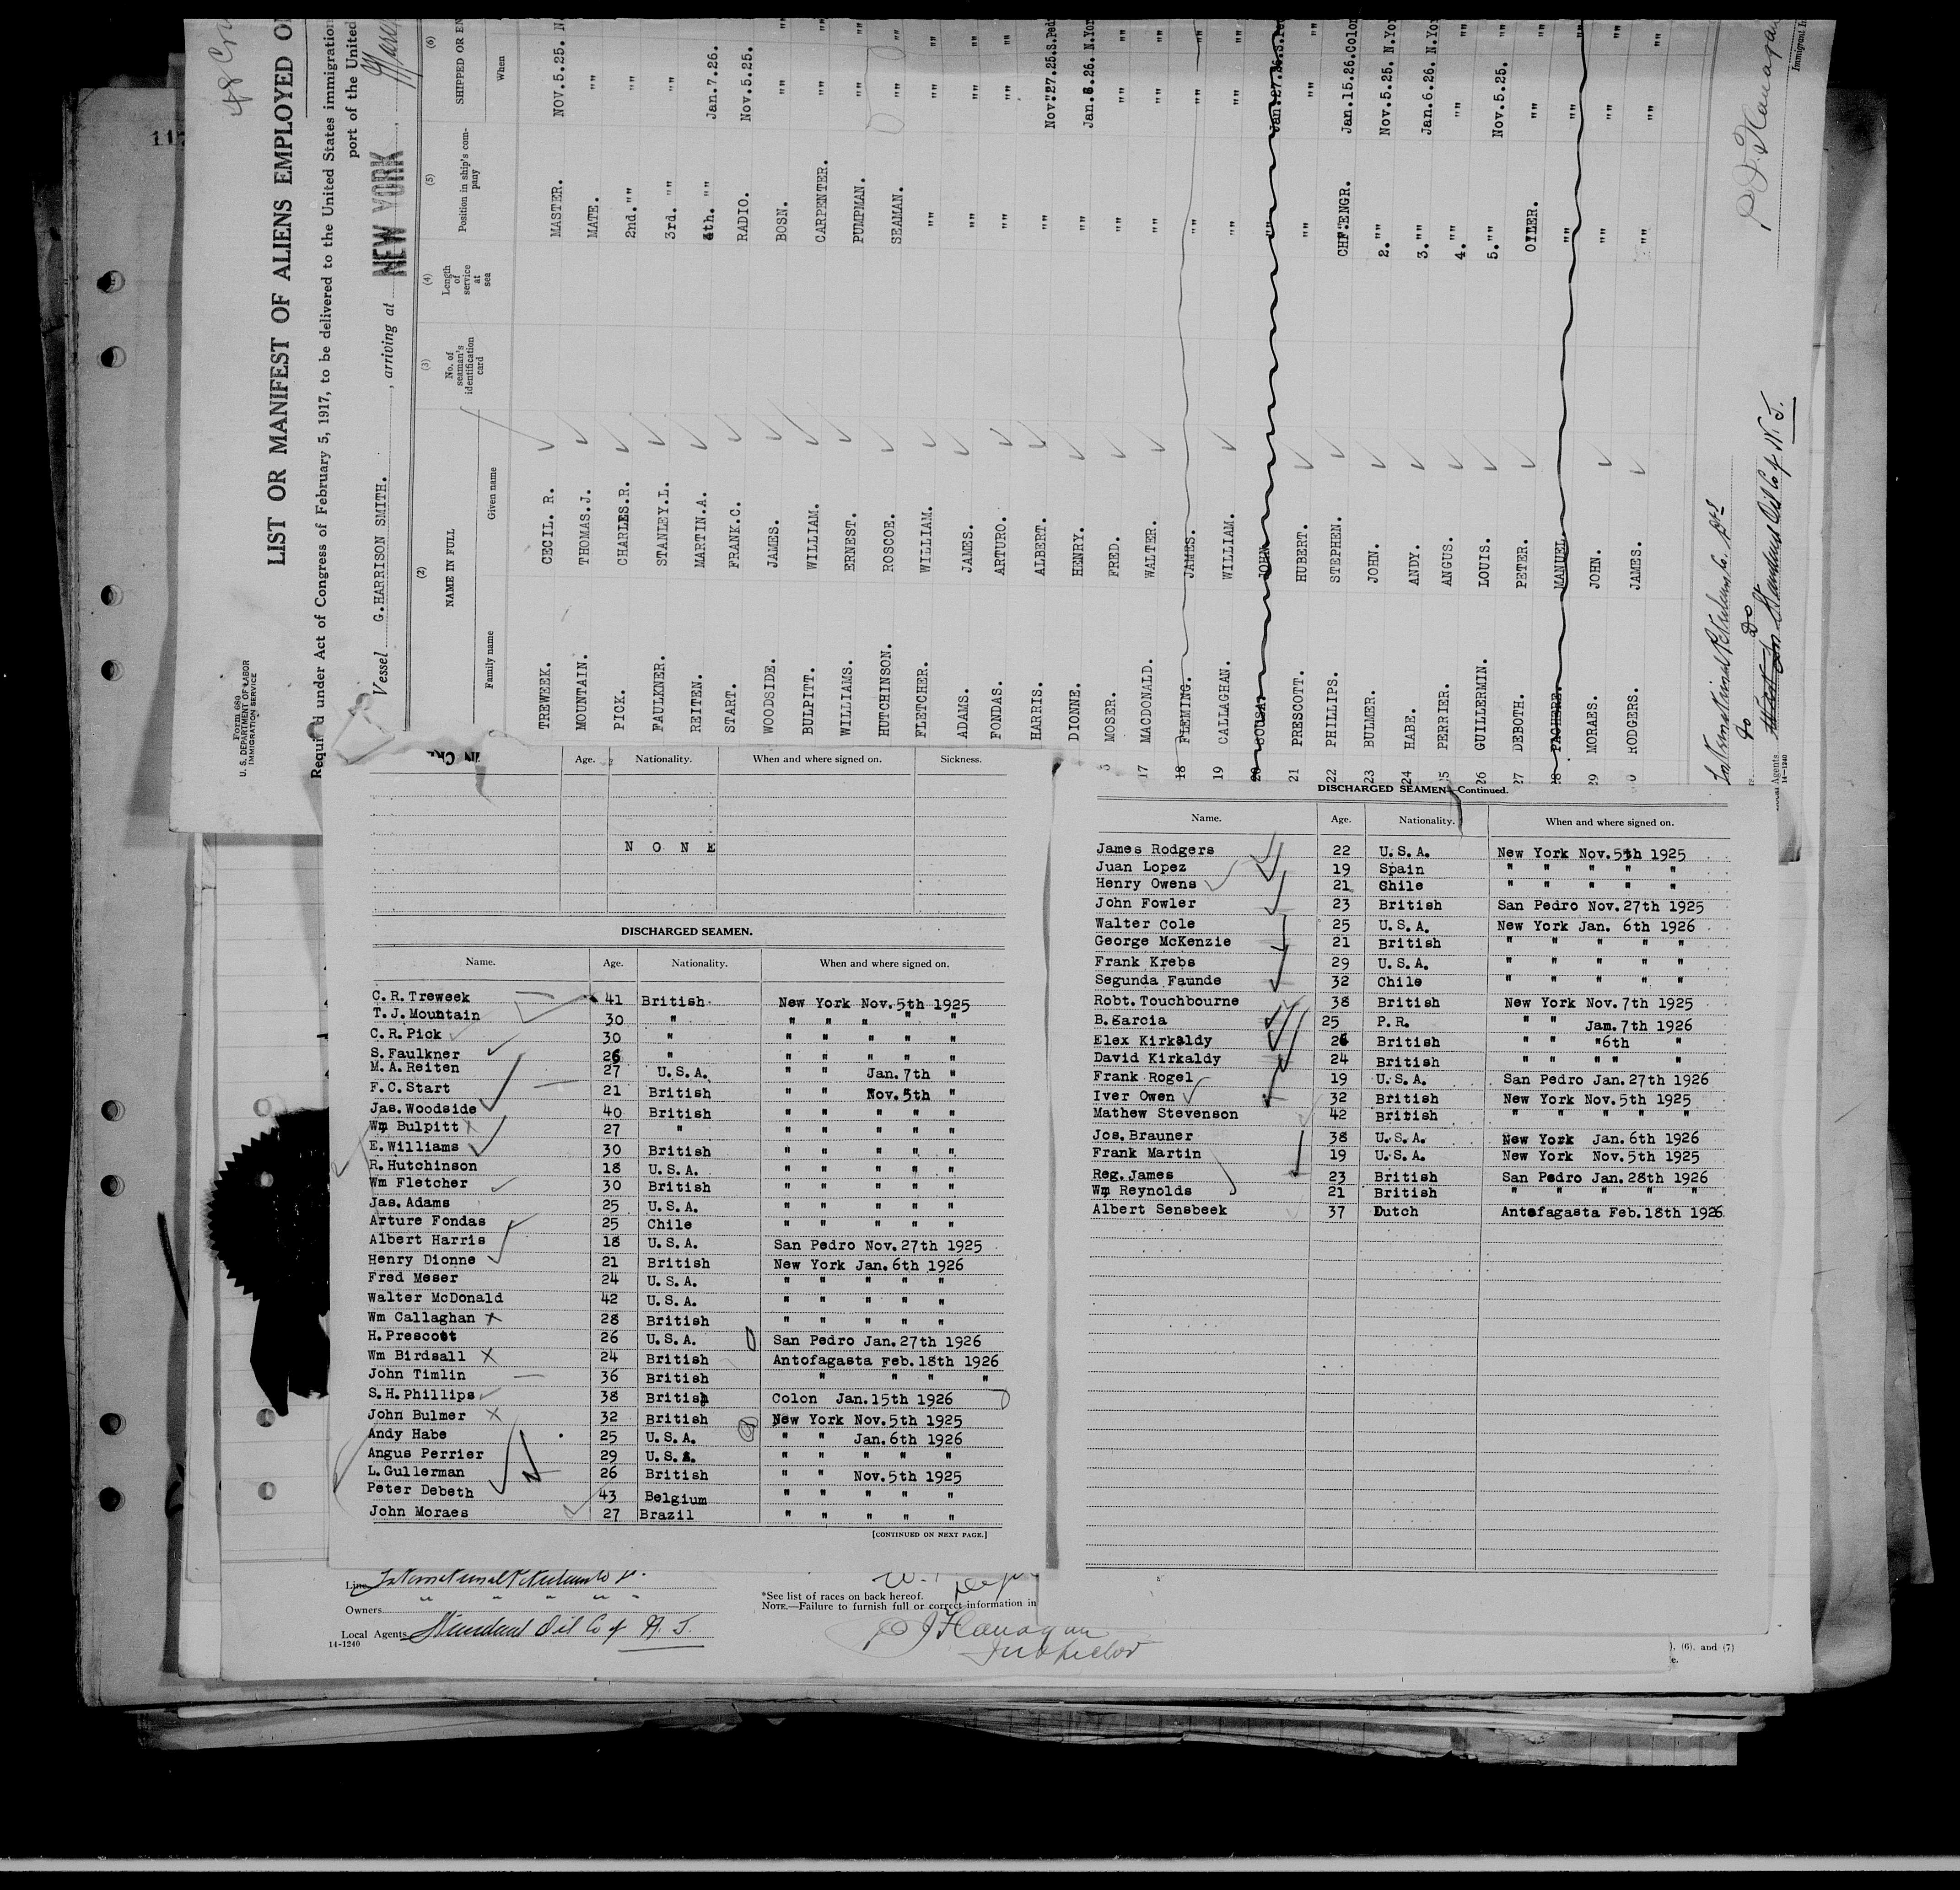 48
LIST OR MANIFEST OF ALIENS EMPLOYED
Form 689
U. S. DEPARTMENT OF LABOR
IMMIGRATION SERVICE
under Act of Congress of February 5, 1917, to be delivered to the United States immigration
port of the United
Vessel G.HARRISON SMITH. , arriving at NEW YORK
(2) (3) (4) (5) (6)
NAME IN FULL No. of seaman's identification card Length of service at sea Position in ship's company SHIPPED OR
Family name Given name When
TREWEEK. CECIL. R. MASTER. NOV.5.25. N.
MOUNTAIN. THOMAS.J. MATE. " "
PICK. CHARLES.R. 2nd. " " " "
FAULKNER. STANLEY.L. 3rd. " " " "
REITEN. MARTIN.A. 4th. " " Jan.7.26.
START. FRANK.C. RADIO. Nov.5.25.
WOODSIDE. JAMES. BOSN. " "
BULPITT. WILLIAM. CARPENTER. " "
WILLIAMS. ERNEST. PUMPMAN. " "
HUTCHINSON. ROSCOE. SEAMAN. " "
FLETCHER. WILLIAM. " " " "
ADAMS. JAMES. " " " "
FONDAS. ARTURO. " " " "
HARRIS. ALBERT. " " Nov.27.25.S.Ped
DIONNE. HENRY. " " Jan.6.26. N.Yor
MOSER. FRED. " " " "
17 MACDONALD. WALTER. " " " "
18 FLEMING. JAMES. " " " "
19 CALLAGHAN. WILLIAM. " " " "
20 SOUSA. JOHN. " " Jan.27.26.S.Ped
21 PRESCOTT. HUBERT. " " " "
22 PHILLIPS. STEPHEN. CHF.ENGR. Jan.15.26.Colon
23 BULMER. JOHN. 2. " " Nov.5.25. N.Yo
24 HABE. ANDY. 3. " " Jan.6.26. N.Yo
25 PERRIER. ANGUS. 4. " " " "
26 GUILLERMIN. LOUIS. 5. " " Nov.5.25.
27 DEBOTH. PETER. OILER. " "
28 MANUEL. " " " "
29 MORAES. JOHN. " " " "
RODGERS. JAMES. " " " "
International Petroleum Co.
Do
Standard Oil Co of N. J.
Agents
14-1240
P J Flanagan
Immigrant
Age. Nationality. When and where signed on. Sickness.
N O N E
DISCHARGED SEAMEN.
Name. Age. Nationality. When and where signed on.
C.R.Treweek 41 British New York Nov.5th 1925
T.J.Mountain 30 " " " " " "
C.R.Pick 30 " " " " " "
S.Faulkner 26 " " " " " "
M.A.Reiten 27 U.S.A. " " Jan.7th "
F.C.Start 21 British " " Nov.5th "
Jas.Woodside 40 British " " " " "
Wm Bulpitt 27 " " " " " "
E.Williams 30 British " " " " "
R.Hutchinson 18 U.S.A. " " " " "
Wm Fletcher 30 British " " " " "
Jas.Adams 25 U.S.A. " " " " "
Arture Fondas 25 Chile " " " " "
Albert Harris 18 U.S.A. San Pedro Nov.27th 1925
Henry Dionne 21 British New York Jan.6th 1926
Fred Meser 24 U.S.A. " " " " "
Walter McDonald 42 U.S.A. " " " " "
Wm Callaghan 28 British " " " " "
H.Prescott 26 U.S.A. San Pedro Jan.27th 1926
Wm Birdsall 24 British Antofagasta Feb.18th 1926
John Timlin 36 British " " " "
S.H.Phillips 38 British Colon Jan.15th 1926
John Bulmer 32 British New York Nov.5th 1925
Andy Habe 25 U.S.A. " " Jan.6th 1926
Angus Perrier 29 U.S.A. " " " " "
L.Gullerman 26 British " " Nov.5th 1925
Peter Debeth 43 Belgium " " " " "
John Moraes 27 Brazil " " " " "
[CONTINUED ON NEXT PAGE.]
DISCHARGED SEAMEN—Continued.
Name. Age. Nationality. When and where signed on.
James Rodgers 22 U.S.A. New York Nov.5th 1925
Juan Lopez 19 Spain " " " " "
Henry Owens 21 Chile " " " " "
John Fowler 23 British San Pedro Nov.27th 1925
Walter Cole 25 U.S.A. New York Jan. 6th 1926
George McKenzie 21 British " " " " "
Frank Krebs 29 U.S.A. " " " " "
Segunda Faunde 32 Chile " " " " "
Robt.Touchbourne 38 British New York Nov.7th 1925
B.Garcia 25 P.R. " " Jam.7th 1926
Elex Kirkaldy 26 British " " "6th "
David Kirkaldy 24 British " " " " "
Frank Rogel 19 U.S.A. San Pedro Jan.27th 1926
Iver Owen 32 British New York Nov.5th 1925
Mathew Stevenson 42 British " " " " "
Jos.Brauner 38 U.S.A. New York Jan.6th 1926
Frank Martin 19 U.S.A. New York Nov.5th 1925
Reg.James 23 British San Pedro Jan.28th 1926
Wm Reynolds 21 British " " " " "
Albert Sensbeek 37 Dutch Antofagasta Feb.18th 1926
Line International Petroleum Co
Owners " " " "
Local Agents Standard Oil Co of N. J.
14-1240
*See list of races on back hereof.
NOTE.—Failure to furnish full or correct information in
P J Flanagan
Inspector
), (6), and (7)